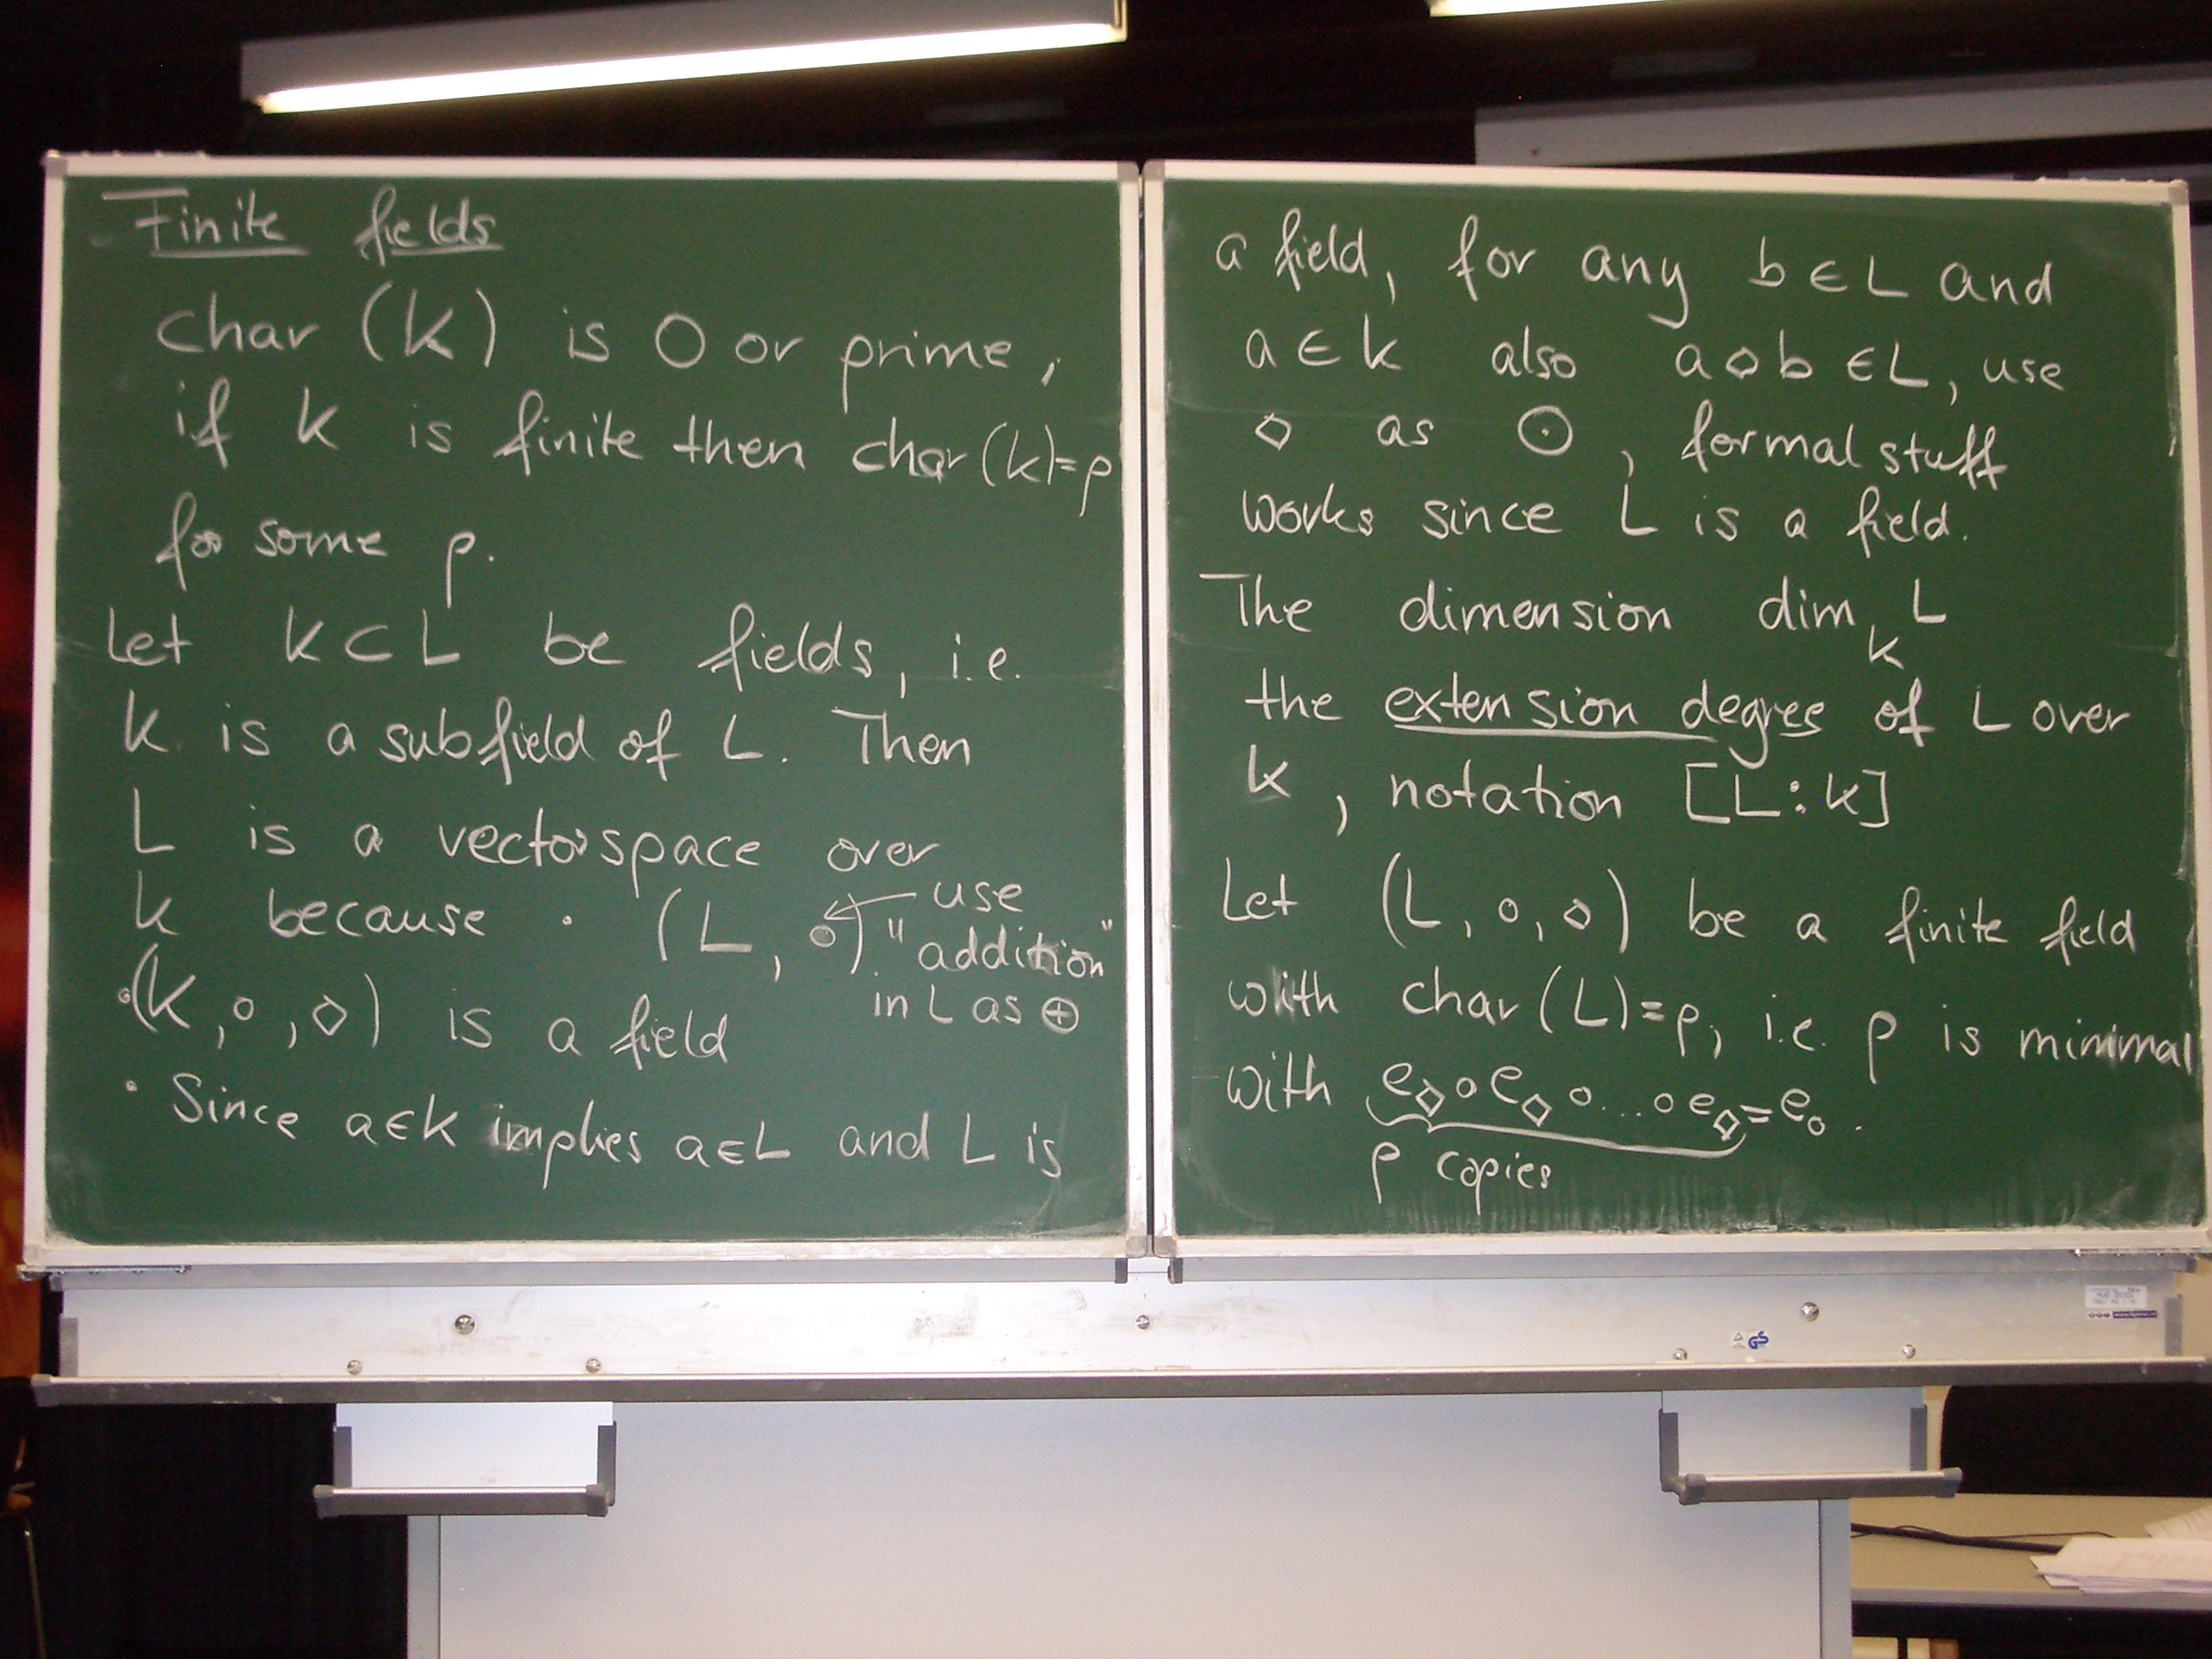 Finite fields
char (K) is 0 or prime,
if K is finite then char(K)=p
for some p.
Let K⊂L be fields, i.e.
K is a subfield of L. Then
L is a vectorspace over
K because · (L, ∘). ← use
"addition"
in L as ⊕
·(K,∘,◇) is a field
· Since a∈K implies a∈L and L is
a field, for any b∈L and
a∈K also a◇b∈L, use
◇ as ⊙, formal stuff
works since L is a field.
The dimension dim_K L
the extension degree of L over
K, notation [L:K]
Let (L,∘,◇) be a finite field
with char(L)=p, i.e. p is minimal
with e_◇∘e_◇∘...∘e_◇=e_∘.
p copies
GS